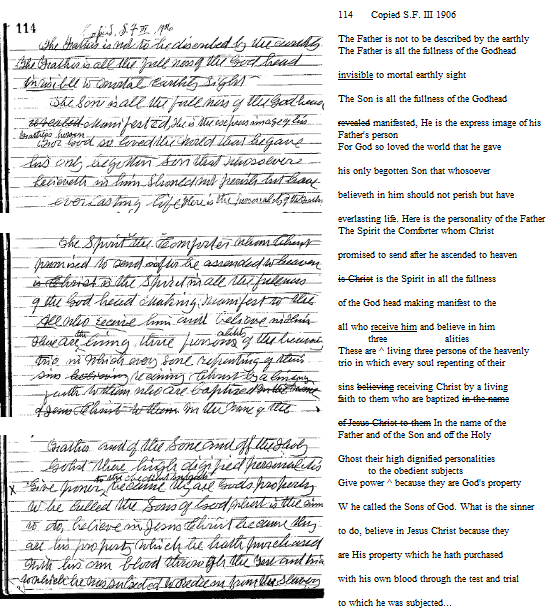 114 Copied, S. F. III. 1906
The Father is not to be described by the earthly
The Father is all the fullness of the God head
invisible to mortal earthly sight
The Son is all the fullness of the God head
revealed manifested, He is the express image of his
Father's person
For God so loved the world that he gave
his only begotten Son that whosoever
believeth in him should not perish but have
everlasting life Here is the personality of the Father
The Spirit the Comforter whom Christ
promised to send after he ascended to heaven
is Christ is the Spirit in all the fullness
of the God head making manifest to the
all who receive him and believe in him
There are the living three persons of the heavenly
alities
trio in which every soul repenting of their
sins believing receiving Christ by a living
faith to them who are baptized in the name
of Jesus Christ to them in the name of the
Father and of the Sone and off the Holy
Gohst these high dignified personalities
to the obedient subjects
X Give power, because they are God's property
W he called the Sons of God what is the sinner
to do, believe in Jesus Christ because they
are his property which he hath purchased
with his own blood through the test and trial
to which he was subjected
114 Copied S.F. III 1906
The Father is not to be described by the earthly
The Father is all the fullness of the Godhead
invisible to mortal earthly sight
The Son is all the fullness of the Godhead
revealed manifested, He is the express image of his
Father's person
For God so loved the world that he gave
his only begotten Son that whosoever
believeth in him should not perish but have
everlasting life. Here is the personality of the Father
The Spirit the Comforter whom Christ
promised to send after he ascended to heaven
is Christ is the Spirit in all the fullness
of the God head making manifest to the
all who receive him and believe in him
three alities
These are ^ living three persons of the heavenly
trio in which every soul repenting of their
sins believing receiving Christ by a living
faith to them who are baptized in the name
of Jesus Christ to them In the name of the
Father and of the Son and off the Holy
Ghost their high dignified personalities
to the obedient subjects
Give power ^ because they are God's property
W he called the Sons of God. What is the sinner
to do, believe in Jesus Christ because they
are His property which he hath purchased
with his own blood through the test and trial
to which he was subjected…